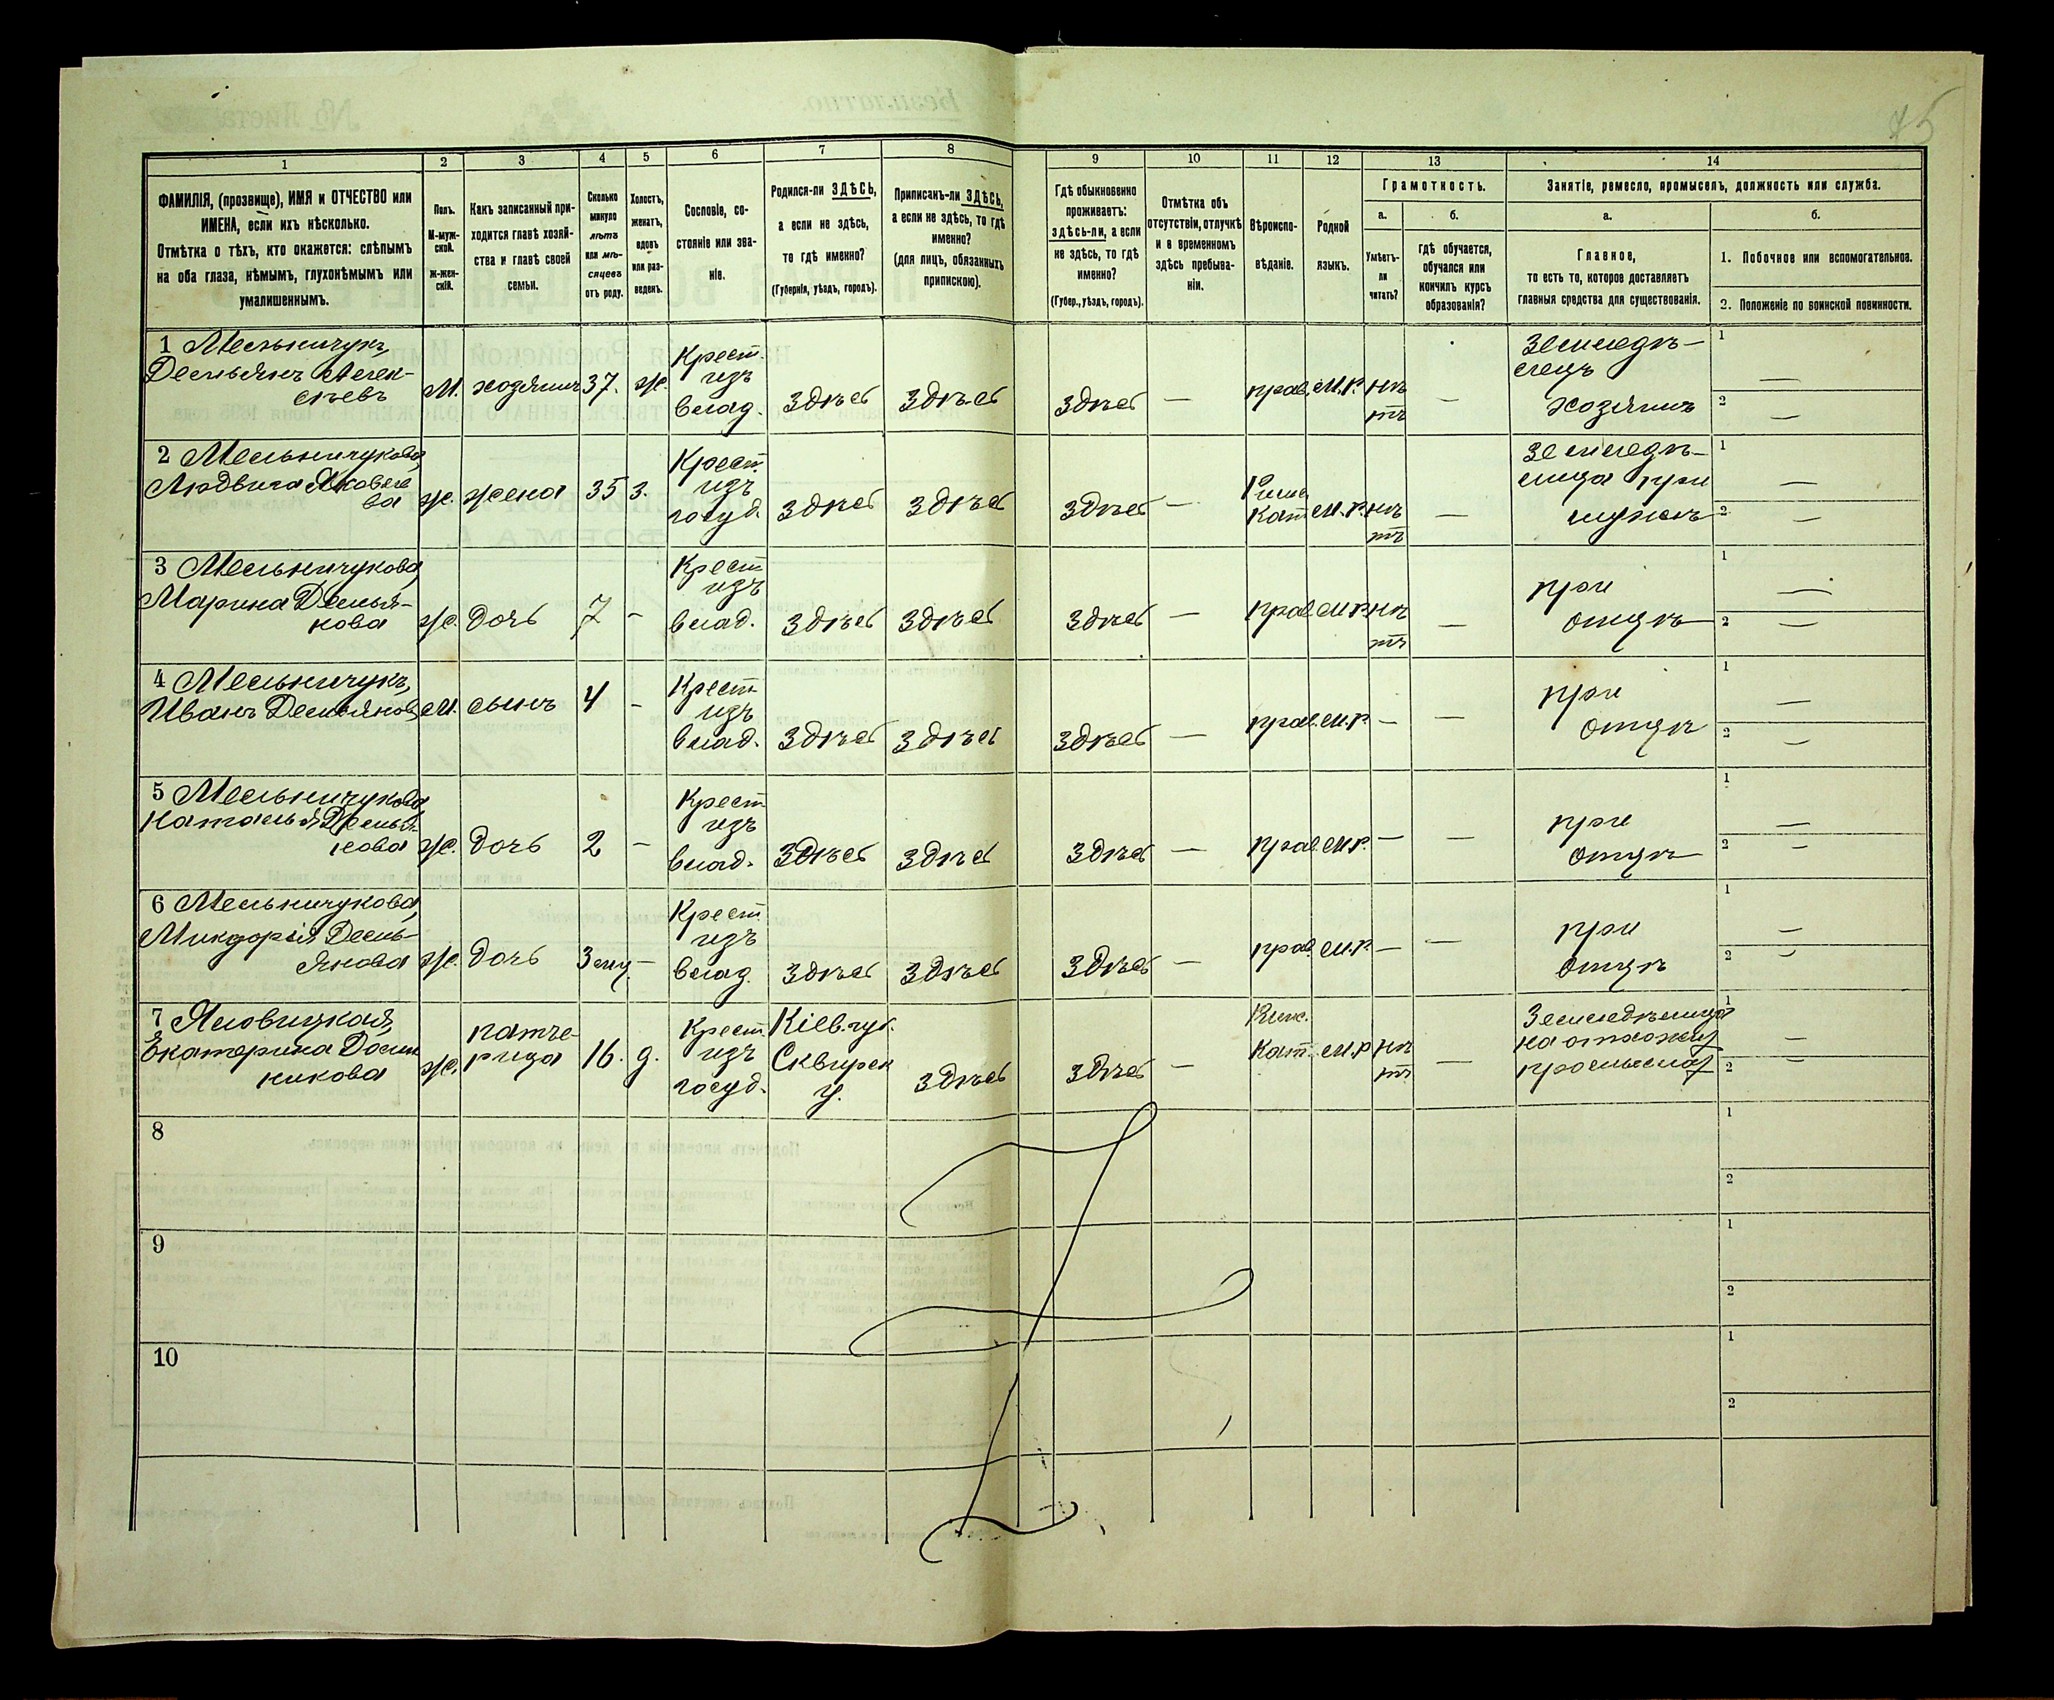 75
1 2 3 4 5 6 7 8 9 10 11 12 13 14
ФАМИЛІЯ, (прозвище), ИМЯ и ОТЧЕСТВО или
ИМЕНА, если ихъ нѣсколько.
Отмѣтка о тѣхъ, кто окажется: слѣпымъ
на оба глаза, нѣмымъ, глухонѣмымъ или
умалишеннымъ.
Полъ.
М-муж-
ской.
Ж-жен-
скій.
Какъ записанный при-
ходится главѣ хозяй-
ства и главѣ своей
семьи.
Сколько
минуло
лѣтъ
или мѣ-
сяцевъ
отъ роду.
Холостъ,
женатъ,
вдовъ
или раз-
веденъ.
Сословіе, со-
стояніе или зва-
ніе.
Родился-ли ЗДѢСЬ,
а если не здѣсь,
то гдѣ именно?
(Губернія, уѣздъ, городъ).
Приписанъ-ли ЗДѢСЬ,
а если не здѣсь, то гдѣ
именно?
(для лицъ, обязанныхъ
припискою).
Гдѣ обыкновенно
проживаетъ:
здѣсь-ли, а если
не здѣсь, то гдѣ
именно?
(Губер., уѣздъ, городъ).
Отмѣтка объ
отсутствіи, отлучкѣ
и о временномъ
здѣсь пребыва-
ніи.
Вѣроиспо-
вѣданіе.
Родной
языкъ.
Грамотность.
а.
Умѣетъ-
ли
читать?
б.
Гдѣ обучается,
обучался или
кончилъ курсъ
образованія?
Занятіе, ремесло, промыселъ, должность или служба.
а.
Главное,
то есть то, которое доставляетъ
главныя средства для существованія.
б.
1. Побочное или вспомогательное.
2. Положеніе по воинской повинности.
1 Мельничукъ,
Демьянъ Алек-
сѣевъ
М. хозяинъ 37. ж.
Крест.
изъ
влад.
здѣсь здѣсь здѣсь — прав. м.р. нѣ
тъ
—
Земледѣ-
лецъ
хозяинъ
1 —
2 —
2 Мельничукова,
Людвига Яковле
ва
ж. жена 35 з.
Крест.
изъ
госуд.
здѣсь здѣсь здѣсь —
Римс.
Кат. м.р. нѣ
тъ
—
Земледѣ-
лица при
мужѣ
1 —
2 —
3 Мельничукова,
Марина Демья-
нова
ж. дочь 7 —
Крест.
изъ
влад.
здѣсь здѣсь здѣсь — прав. м.р. нѣ
тъ
—
при
отцѣ
1 —
2 —
4 Мельничукъ,
Иванъ Демьянов
м. сынъ 4 —
Крест.
изъ
влад.
здѣсь здѣсь здѣсь — прав. м.р. — —
при
отцѣ
1 —
2 —
5 Мельничукова,
Наталья Демья-
нова
ж. дочь 2 —
Крест.
изъ
влад.
здѣсь здѣсь здѣсь — прав. м.р. — —
при
отцѣ
1 —
2 —
6 Мельничукова,
Демь-
янова
ж. дочь 3 мц. —
Крест.
изъ
влад.
здѣсь здѣсь здѣсь — прав. м.р. — —
при
отцѣ
1 —
2 —
7
Екатерина Доми
никова
ж. падче-
рица 16. д.
Крест.
изъ
госуд.
Кіев. губ.
Сквирск
у.
здѣсь здѣсь —
Римс.
Кат. м.р. нѣ
тъ
—
Земледѣлица
на отхожих
промыслах
1 —
2 —
8
1
2
9
1
2
10
1
2